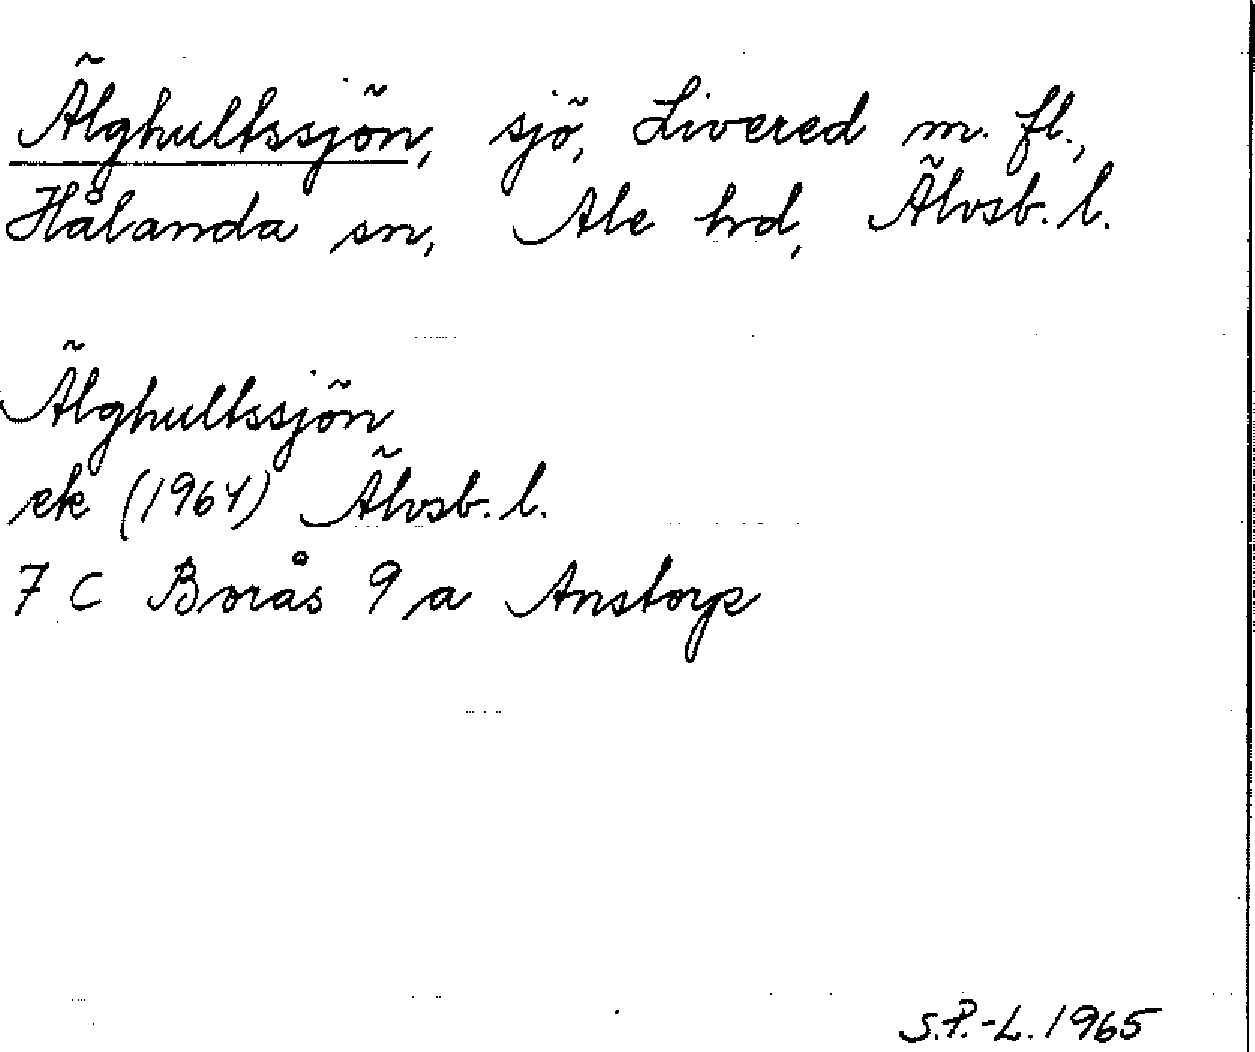 Älghultssjön, sjö, Livered m. fl.,
Hålanda sn, Ale hd, Älvsb. l.
Älghultssjön
ek (1964) Älvsb. l.
7 C Borås 9 a Anstorp
S.P.-L. 1965